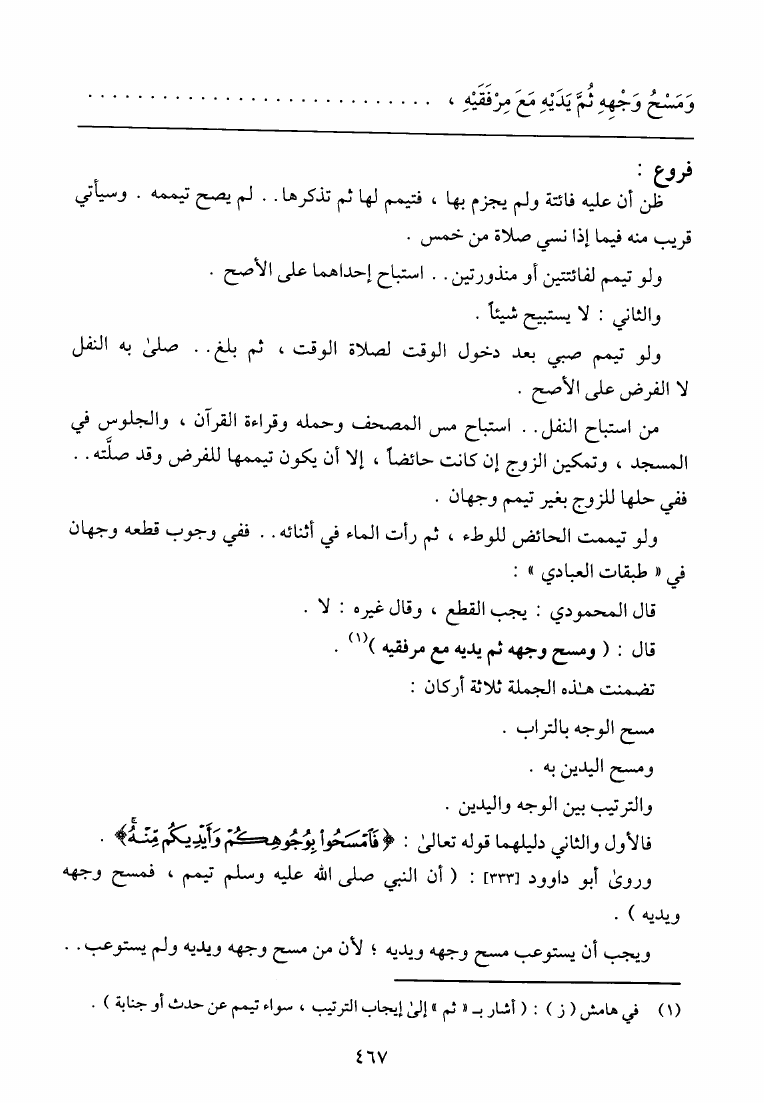 وَمَسْحُ وَجْهِهِ ثُمَّ يَدَيْهِ مَعَ مِرْفَقَيْهِ ، . . . . . . . . . . . . . . . . . . . . . . . . . . . .
فروع :
ظن أن عليه فائتة ولم يجزم بها ، فتيمم لها ثم تذكرها . . لم يصح تيممه . وسيأتي
قريب منه فيما إذا نسي صلاة من خمس .
ولو تيمم لفائتتين أو منذورتين . . استباح إحداهما على الأصح .
والثاني : لا يستبيح شيئاً .
ولو تيمم صبي بعد دخول الوقت لصلاة الوقت ، ثم بلغ . . صلىٰ به النفل
لا الفرض على الأصح .
من استباح النفل . . استباح مس المصحف وحمله وقراءة القرآن ، والجلوس في
المسجد ، وتمكين الزوج إن كانت حائضاً ، إلا أن يكون تيممها للفرض وقد صلَّته . .
ففي حلها للزوج بغير تيمم وجهان .
ولو تيممت الحائض للوطء ، ثم رأت الماء في أثنائه . . ففي وجوب قطعه وجهان
في « طبقات العبادي » :
قال المحمودي : يجب القطع ، وقال غيره : لا .
قال : ( ومسح وجهه ثم يديه مع مرفقيه )(١) .
تضمنت هـٰذه الجملة ثلاثة أركان :
مسح الوجه بالتراب .
ومسح اليدين به .
والترتيب بين الوجه واليدين .
فالأول والثاني دليلهما قوله تعالىٰ : ﴿فَٱمْسَحُوا۟ بِوُجُوهِكُمْ وَأَيْدِيكُم مِّنْهُ﴾ .
وروىٰ أبو داوود [٣٣٣] : ( أن النبي صلى الله عليه وسلم تيمم ، فمسح وجهه
ويديه ) .
ويجب أن يستوعب مسح وجهه ويديه ؛ لأن من مسح وجهه ويديه ولم يستوعب . .
(١) في هامش ( ز ) : ( أشار بـ « ثم » إلىٰ إيجاب الترتيب ، سواء تيمم عن حدث أو جنابة ) .
٤٦٧